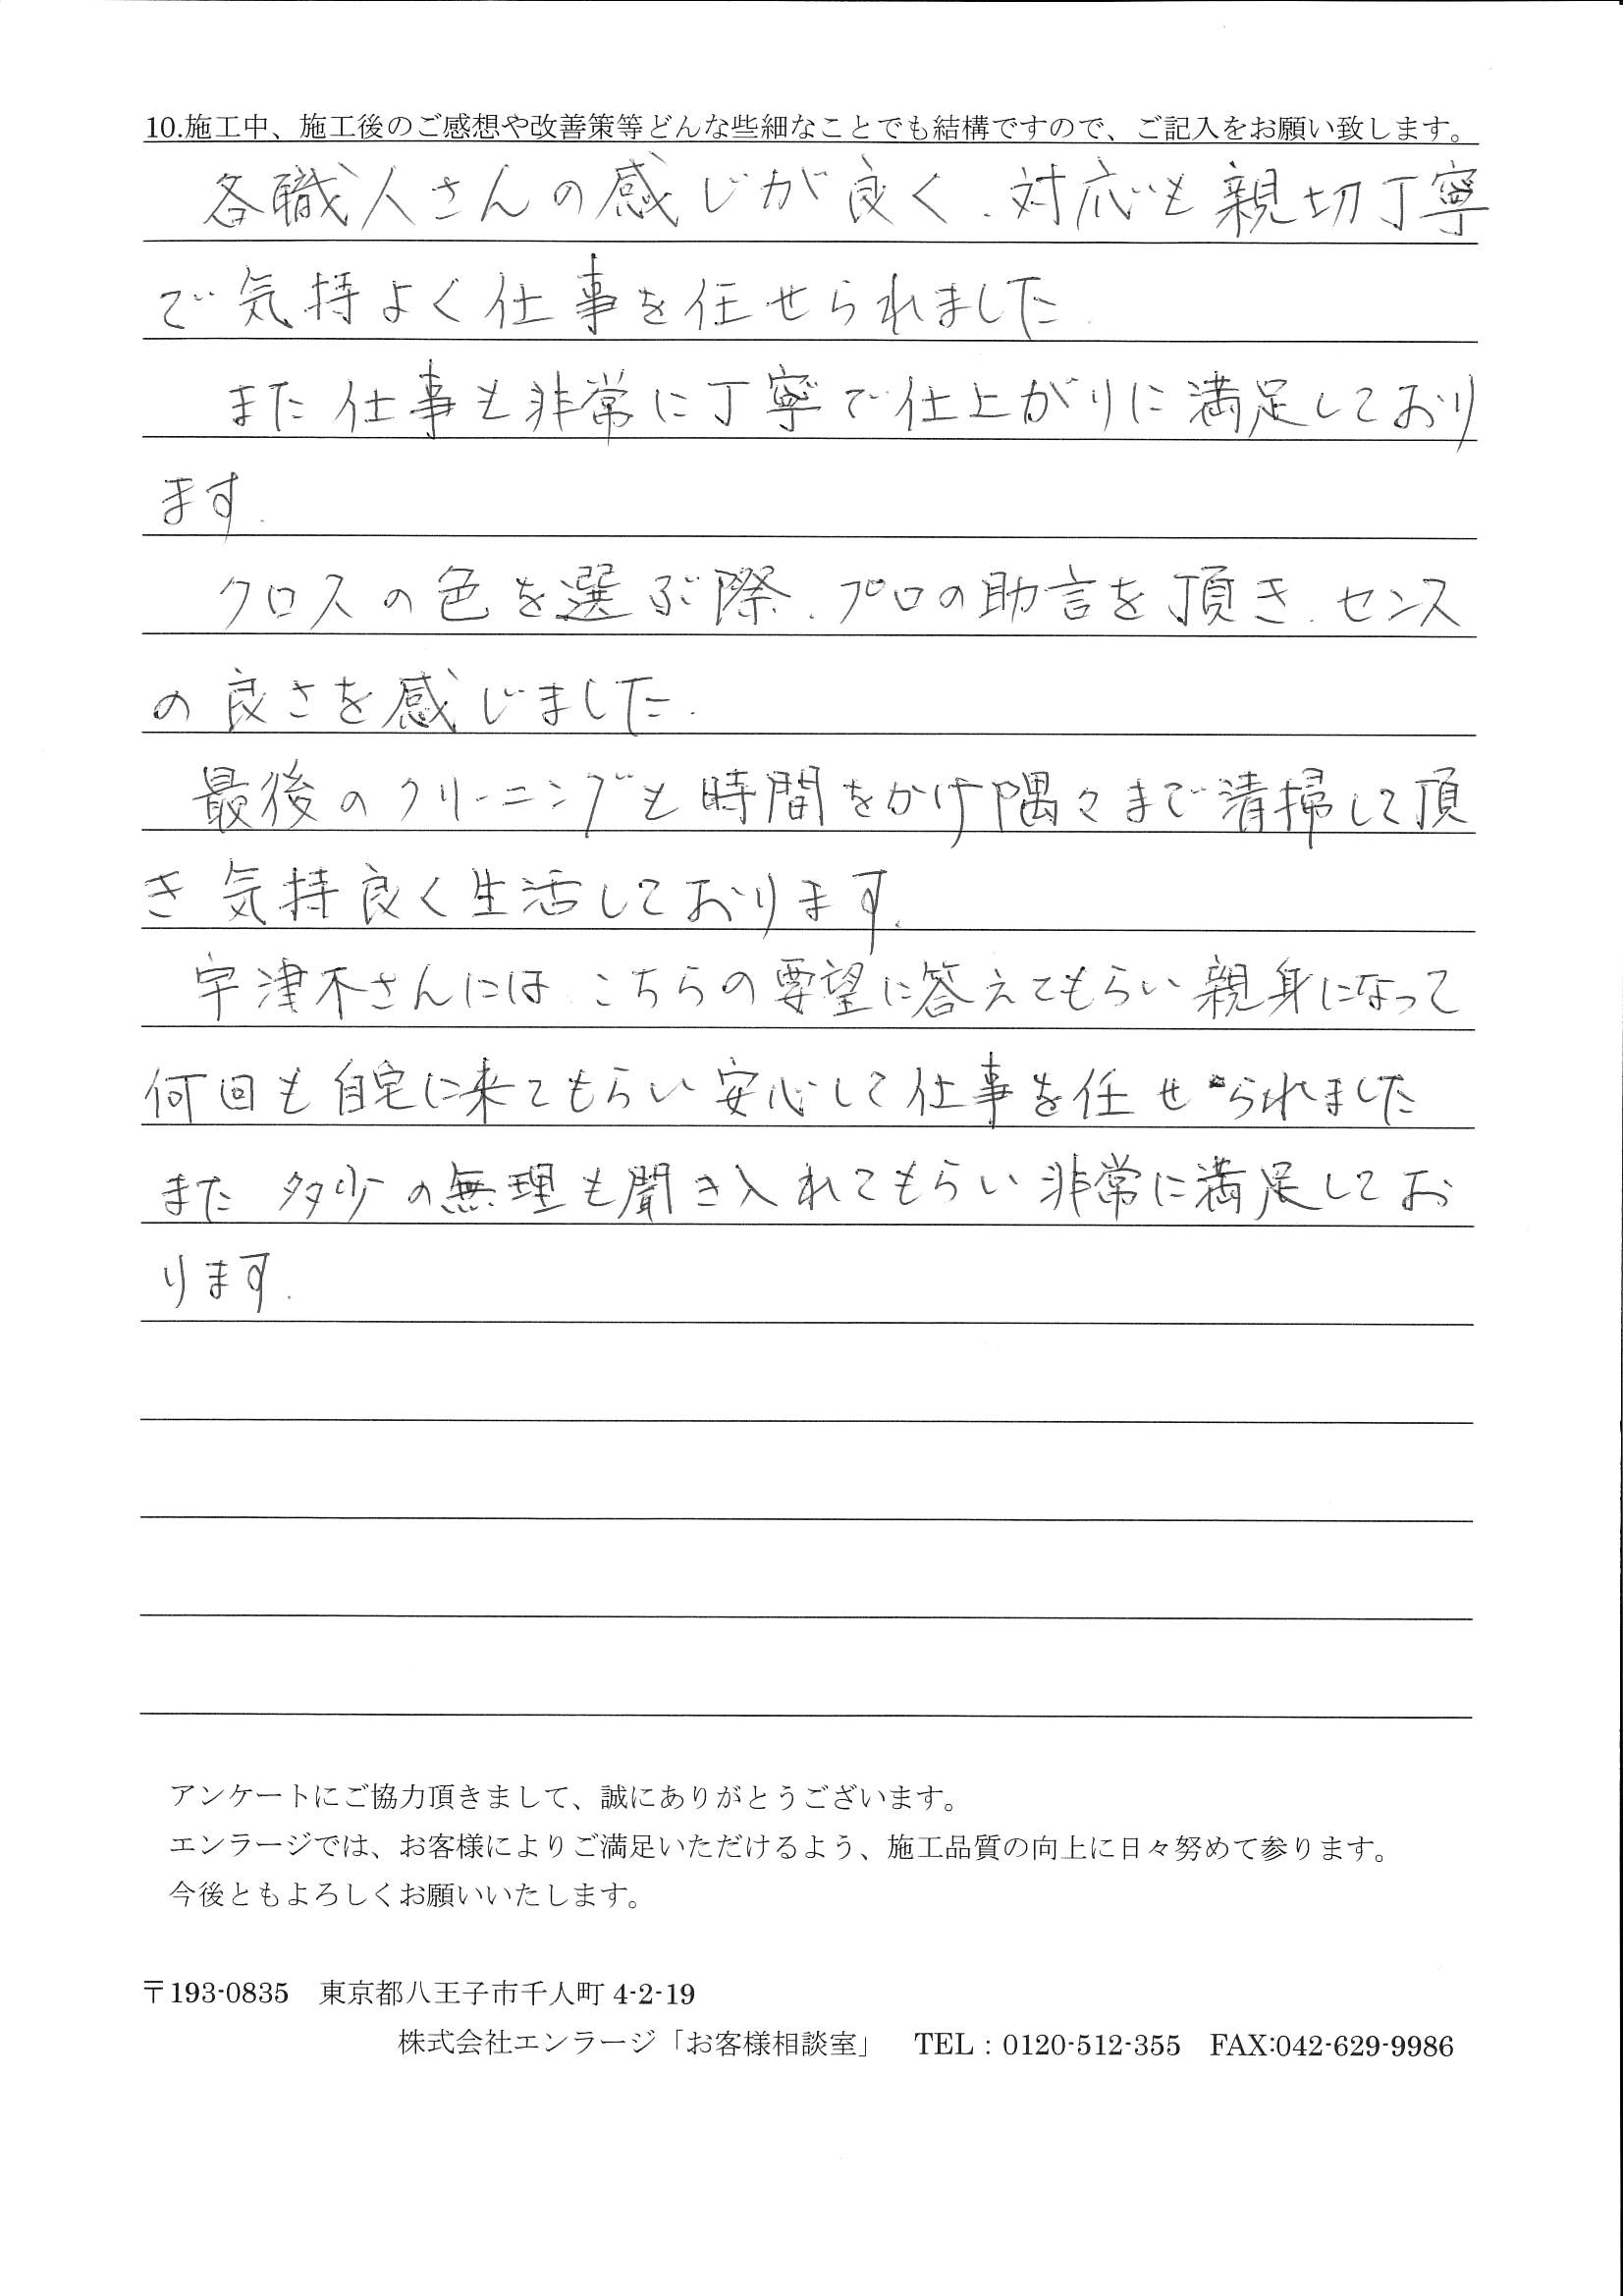 10.施工中、施工後のご感想や改善策等どんな些細なことでも結構ですので、ご記入をお願い致します。
各職人さんの感じが良く、対応も親切丁寧
で気持よく仕事を任せられました。
また仕事も非常に丁寧で仕上がりに満足しており
ます。
クロスの色を選ぶ際、プロの助言を頂き、センス
の良さを感じました。
最後のクリーニングも時間をかけ隅々まで清掃して頂
き気持良く生活しております。
宇津木さんには こちらの要望に答えてもらい親身になって
何回も自宅に来てもらい安心して仕事を任せられました
また 多少の無理も聞き入れてもらい非常に満足してお
ります。
アンケートにご協力頂きまして、誠にありがとうございます。
エンラージでは、お客様によりご満足いただけるよう、施工品質の向上に日々努めて参ります。
今後ともよろしくお願いいたします。
〒193-0835 東京都八王子市千人町 4-2-19
株式会社エンラージ「お客様相談室」 TEL：0120-512-355 FAX:042-629-9986